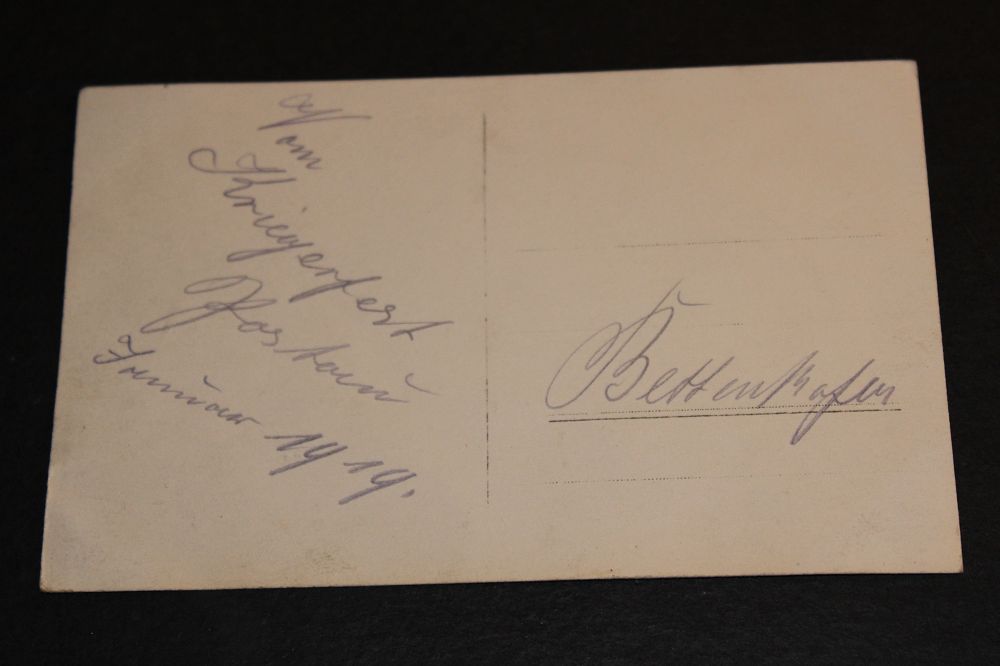 Vom
Kriegerfest
Januar 1919.
Bettenhofen